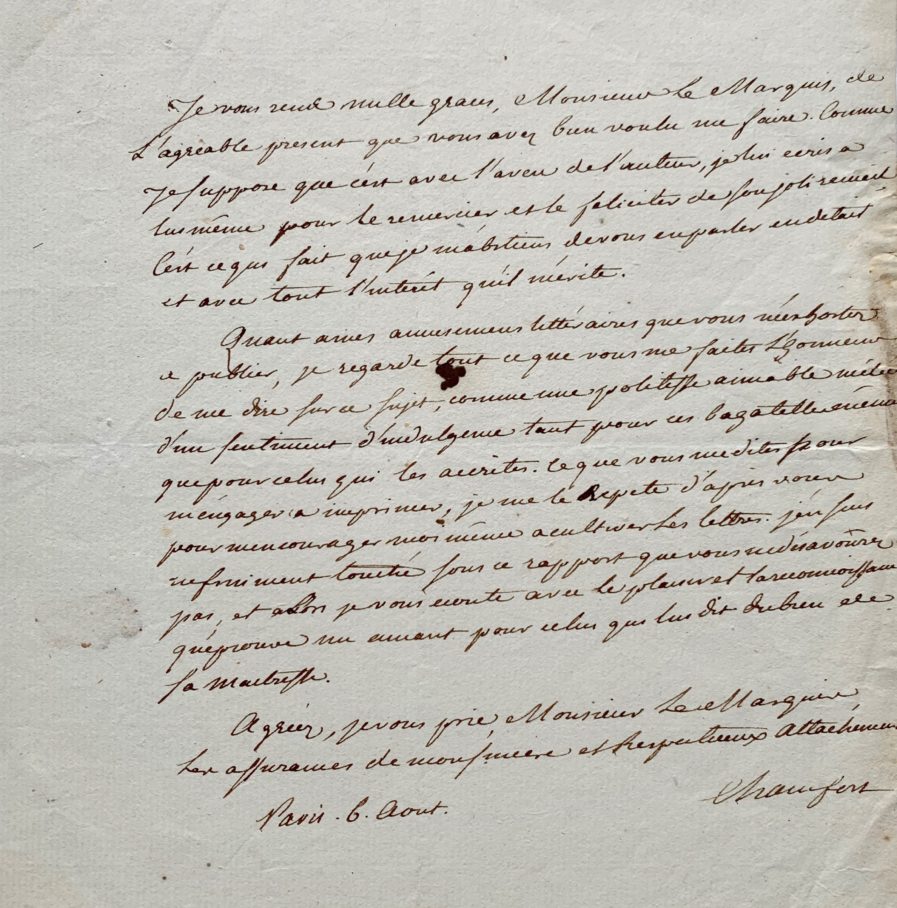 Je vous rend mille graces, Monsieur Le Marquis, de
L'agreable present que vous avez bien voulu me faire. Comme
Je suppose que c'est avec l'aveu de l'auteur, je lui ecris a
lui même pour le remercier et le feliciter de son joli recueil
C'est ce qui fait que je m'abstiens de vous en parler en detail
et avec tout l'interét qu'il mérite.
Quant a mes amusemens littéraires que vous m'exhortez
a publier, je regarde tout ce que vous me faites L'honneur
de me dire sur ce sujet, comme une politesse aimable mélée
d'un sentiment d'indulgence tant pour ces bagatelles même
que pour celui qui les a écrites. Ce que vous me dites pour
m'engager a imprimer, je me le Repete d'après vous
pour m'encourager moi même a cultiver Les lettres. j'en suis
infiniment touché sous ce rapport que vous ne désavoûrez
pas, et alors je vous écoute avec le plaisir et la reconnoissance
qu'éprouve un amant pour celui qui lui dit du bien de
sa maitresse.
Agréez, je vous prie, Monsieur Le Marquis
Les assurances de mon sincere et Respectueux attachement
Chamfort
Paris. 6. Aout.